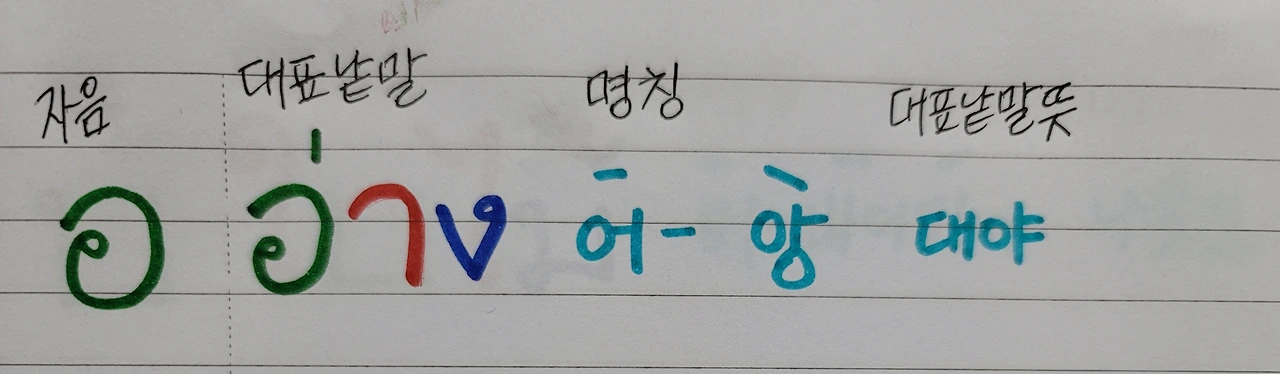 자음 대표낱말 명칭 대표낱말뜻
อ อ่าง 어- 앙 대야